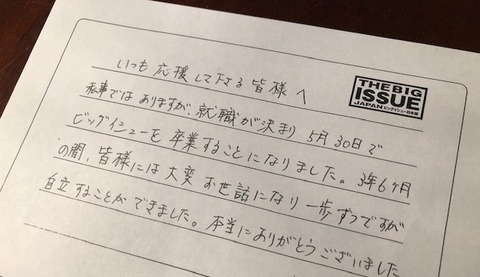 いつも応援して下さる皆様へ
THE BIG
ISSUE
JAPAN ビッグイシュー日本版
私事ではありますが、就職が決まり5月30日で
ビッグイシューを卒業することになりました。3年6ヶ月
の間、皆様には大変お世話になり一歩ずつですが
自立することができました。本当にありがとうございました